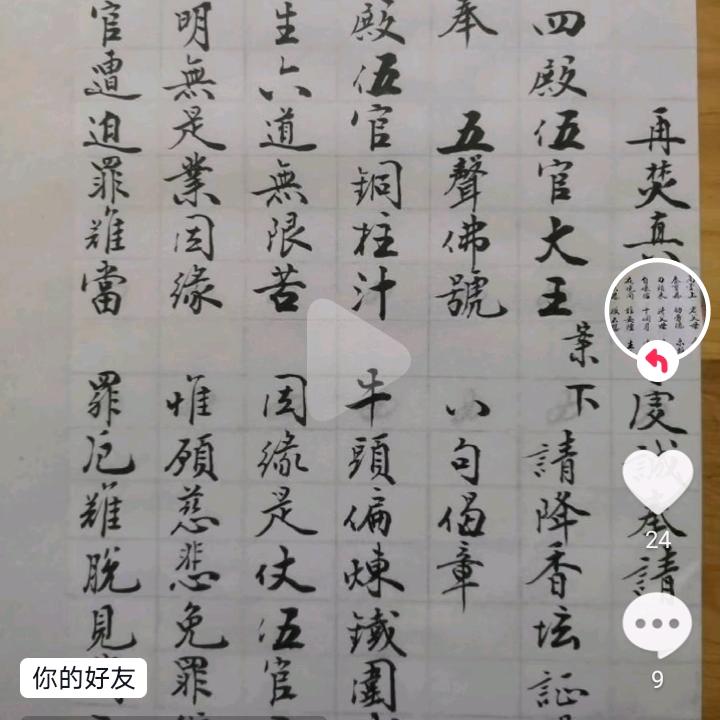 再焚真
虔誠奉請
四殿伍官大王案下請降香坛証
奉 五聲佛號 八句偈章
殿伍官銅柱汁 牛頭偏煉鐵圍
生六道無限苦 因緣是仗伍官
明無是業因緣 惟願慈悲免罪
官遭迫罪難當 罪厄難脫見
24
9
你的好友